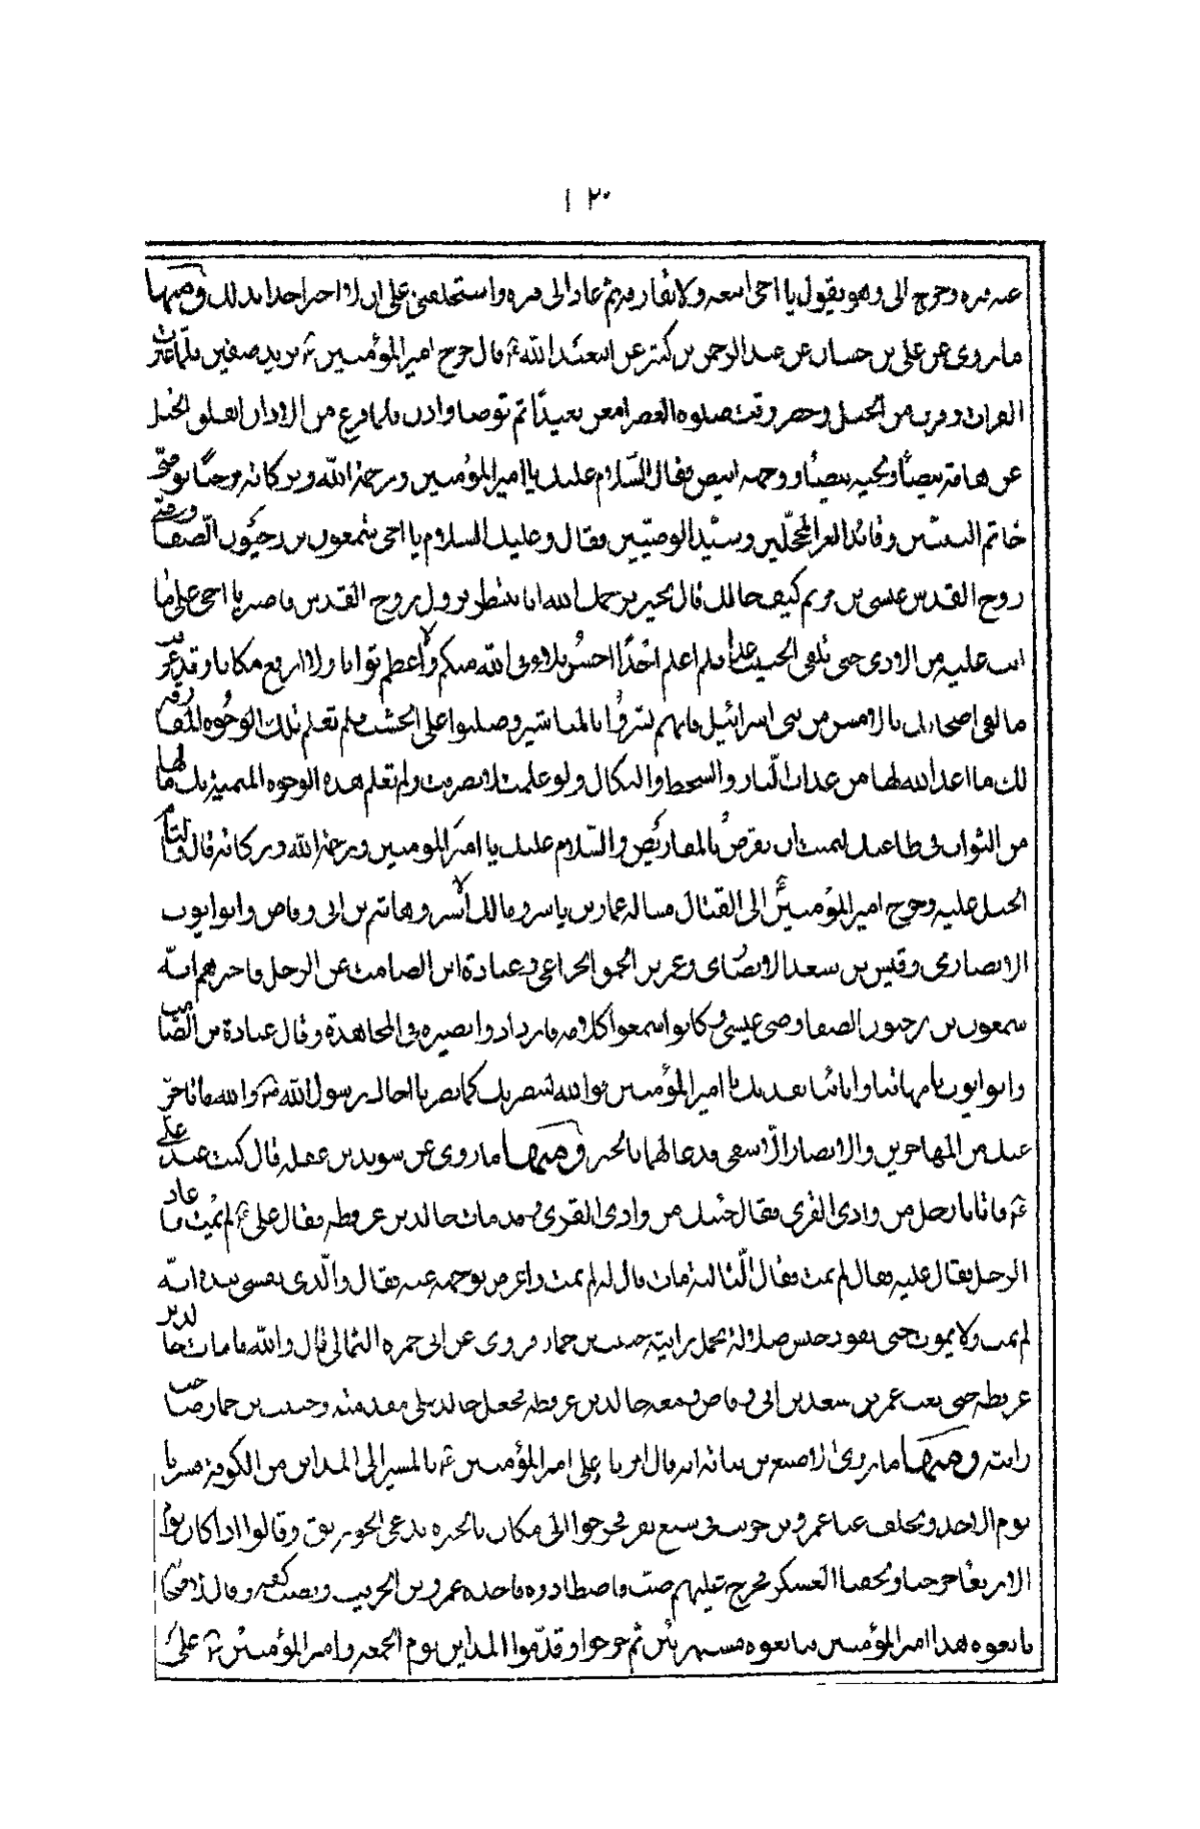 ١٢٠
عن قبره وخرج الي وهو يقول يا اخي اتبعه ولا تفارقه ثم عاد الى قبره واستحلفني علي ان لا اخبر احدا بذلك ومنها
ما روى عن علي بن حسان عن عبد الرحمن بن كثير عن ابيعبد الله ع قال خرج امير المؤمنين ع يريد صفين فلما عبر
الفرات وقرب من الجبل وحضر وقت صلوة العصر امعن بعيدًا ثم توضا واذن فلما فرغ من الاذان انفلق الجبل
عن هامة بيضآ ولحية بيضآ ووجه ابيض فقال السّلام عليك يا امير المؤمنين ورحمة الله وبركاته مرحبًا بوصىّ
خاتم النبيين وقائد الغر المحجّلين وسيّد الوصيّين فقال وعليك السلام يا اخي شمعون بن
روح القدس عيسى بن مريم كيف حالك قال بخير يرحمك الله انا منتظر نزول روح القدس فاصبر يا اخي على ما
انت عليه من الاذى حتى تلقى الحبيب غدا فلم اعلم احدًا احسن بلاء في الله منكم ولا اعظم ثوابا ولا ارفع مكانا وقد
ما لقى اصحابك بالامس من بني اسرائيل فانهم نشروا بالمناشير وصلبوا على الخشب فلم تعلم تلك الوجوه
لك ما اعد الله لها من عذاب النّار والسخط والنكال ولو علمت لاقصرت ولم تعلم هذه الوجوه ما لها
من الثواب في طاعتك لتمنت ان تقرض بالمقاريض والسّلام عليك يا امير المؤمنين ورحمة الله وبركاته قال والتام
الجبل عليه وخرج امير المؤمنين ع الى القتال فساله عمار بن ياسر ومالك الاشتر وهاشم بن ابي وقاص وابو ايوب
الانصاري وقيس بن سعد الانصاري وعمر بن الحمق الخزاعي وعبادة ابن الصامت عن الرجل فاخبرهم انّه
شمعون بن الصفا وصى عيسى وكانوا سمعوا كلامه فازدادوا بصيرة في المجاهدة وقال عبادة بن الصّامت
وابو ايوب بامهاتنا وابائنا نفديك يا امير المؤمنين فوالله لننصرنك كما نصرنا اخاك رسول الله ص والله ما تاخّر
عنك من المهاجرين والانصار الّا شقي فدعا لهما بالخير ومنها ما روى عن سويد بن غفله قال كنت عند علي
ع فاتانا رجل من وادي القرى فقال جئتك من وادي القرى وقد مات خالد بن عرفطه فقال علي ع لم يمت فاعاد
الرجل فقال عليه فقال لم يمت فقال الثّالثة مات قال له لم يمت واعرض بوجهه عنه فقال والّذي نفسي بيده انّه
لم يمت ولا يموت حتى يقود جيش ضلالة يحمل رايته حبيب بن حماد وروى عن ابي حمزه الثمالي قال والله ما مات خالد بن
عرفطه حتى بعث عمر بن سعد بن ابي وقاص ومعه خالد بن عرفطه فجعل خالد على مقدمته وحبيب بن حمار صاحب
رايته ومنها ما روى الاصبغ بن نباته انه قال امرنا علي امير المؤمنين ع بالمسير الى المداين من الكوفة فسرنا
يوم الاحد وتخلف عنا عمرو بن حريث في سبع نفر فخرجوا الى مكان بالحيره يدعى الخورنق وقالوا اذا كان يوم
الاربعآ خرجنا ولحقنا العسكر فخرج عليهم ضب فاصطادوه فاخذه عمرو بن الحريب ونصب كفه وقال لاصحابه
بايعوه هذا امير المؤمنين فبايعوه ثم خرجوا وقدّموا المداين يوم الجمعه وامير المؤمنين ع على